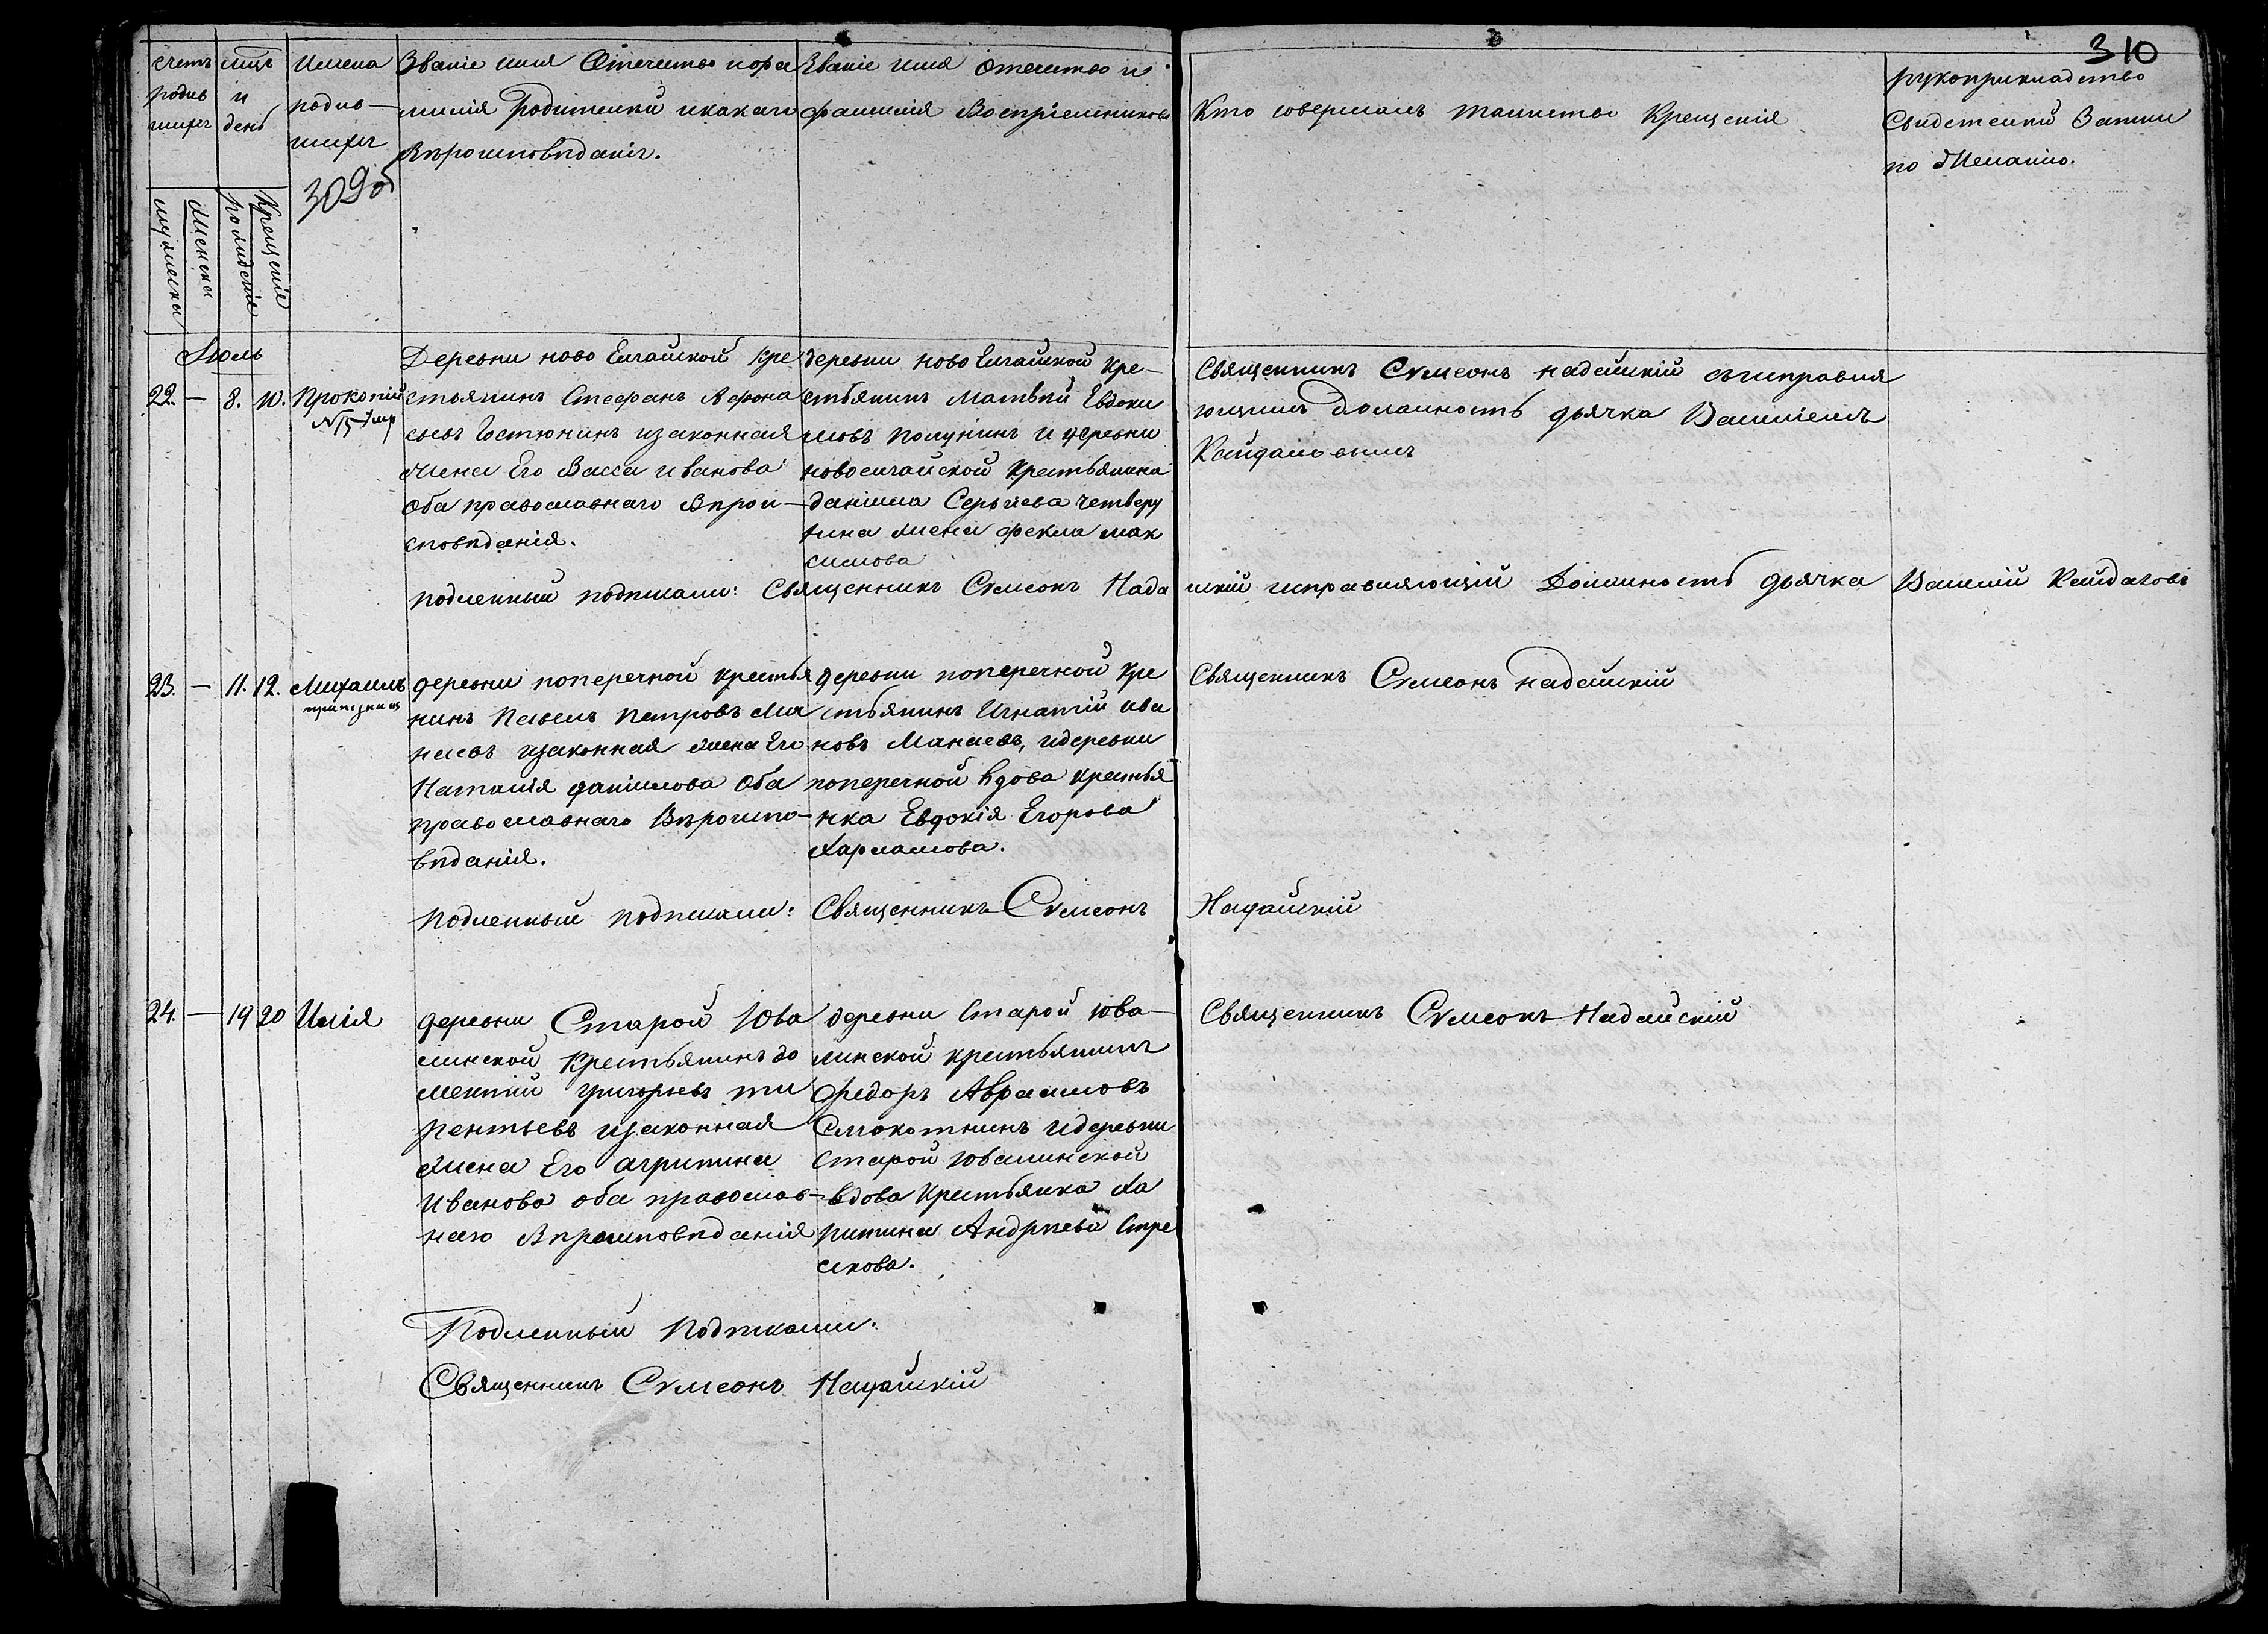 310
счетъ родив шихъ
мцъ и день
Имена родив— шихъ
Званіе имя Отечество и фа милія Родителей и какаго Вѣроисповѣданія.
Званіе имя отечество и фамилія Воспріемниковъ
Кто совершалъ таинство Крещенія
рукоприкладство Свидетелей Записи по Желанію.
309об
мужеска
Женска
рожденіе
Крещеніе
Іюль
22. — 8. 10. Прокопій
Деревни ново Елгайской кре
стьянинъ Стефанъ Афона
сьевъ Гостюнинъ и законная
Жена Его Васса иванова
Оба православнаго Вѣрои—
сповѣданія.
деревни ново Елгайской Кре—
стьянинъ Матвѣй Евдоки
мовъ Полунинъ и деревни
новоелгайской Крестьянина
даніила Сергѣева Четверу
хина жена Фекла мак
симова
Священникъ Сѵмеонъ надеинскій съ исправля
ющимъ должность дьячка Василіемъ
Кайдаловымъ
подленный подписали: Священникъ Сѵмеонъ Нада инскій исправляющій Должность дьячка Василій Кайдаловъ
23. — 11. 12. Михаилъ
деревни поперечной крестья
нинъ Павелъ Петровъ Ма
наевъ и законная жена Его
Наталія даниилова Оба
православнаго Вѣроиспо—
вѣданія.
деревни поперечной Кре
стьянинъ Игнатій ива
новъ Манаевъ, и деревни
поперечной вдова крестья
нка Евдокія Егорова
Харламова.
Священникъ Сѵмеонъ надеинскій
Подленный подписали: Священникъ Сѵмеонъ Надаинскій
24. — 19 20 Илія
деревни Старой Юва
линской Крестьянинъ до
ментій григорьевъ ти
рентьевъ и законная
Жена Его агрипина
Иванова оба православ—
наго Вѣроисповѣданія
деревни Старой юва—
линской крестьянинъ
Федоръ Авраамовъ
Смокотнинъ и деревни
Старой ювалинской
вдова Крестьянка Ха
ритина Андрѣева Стре
лкова.
Священникъ Сѵмеонъ Надаинскій
Подленный Подписали:
Священникъ Сѵмеонъ Надаинскій